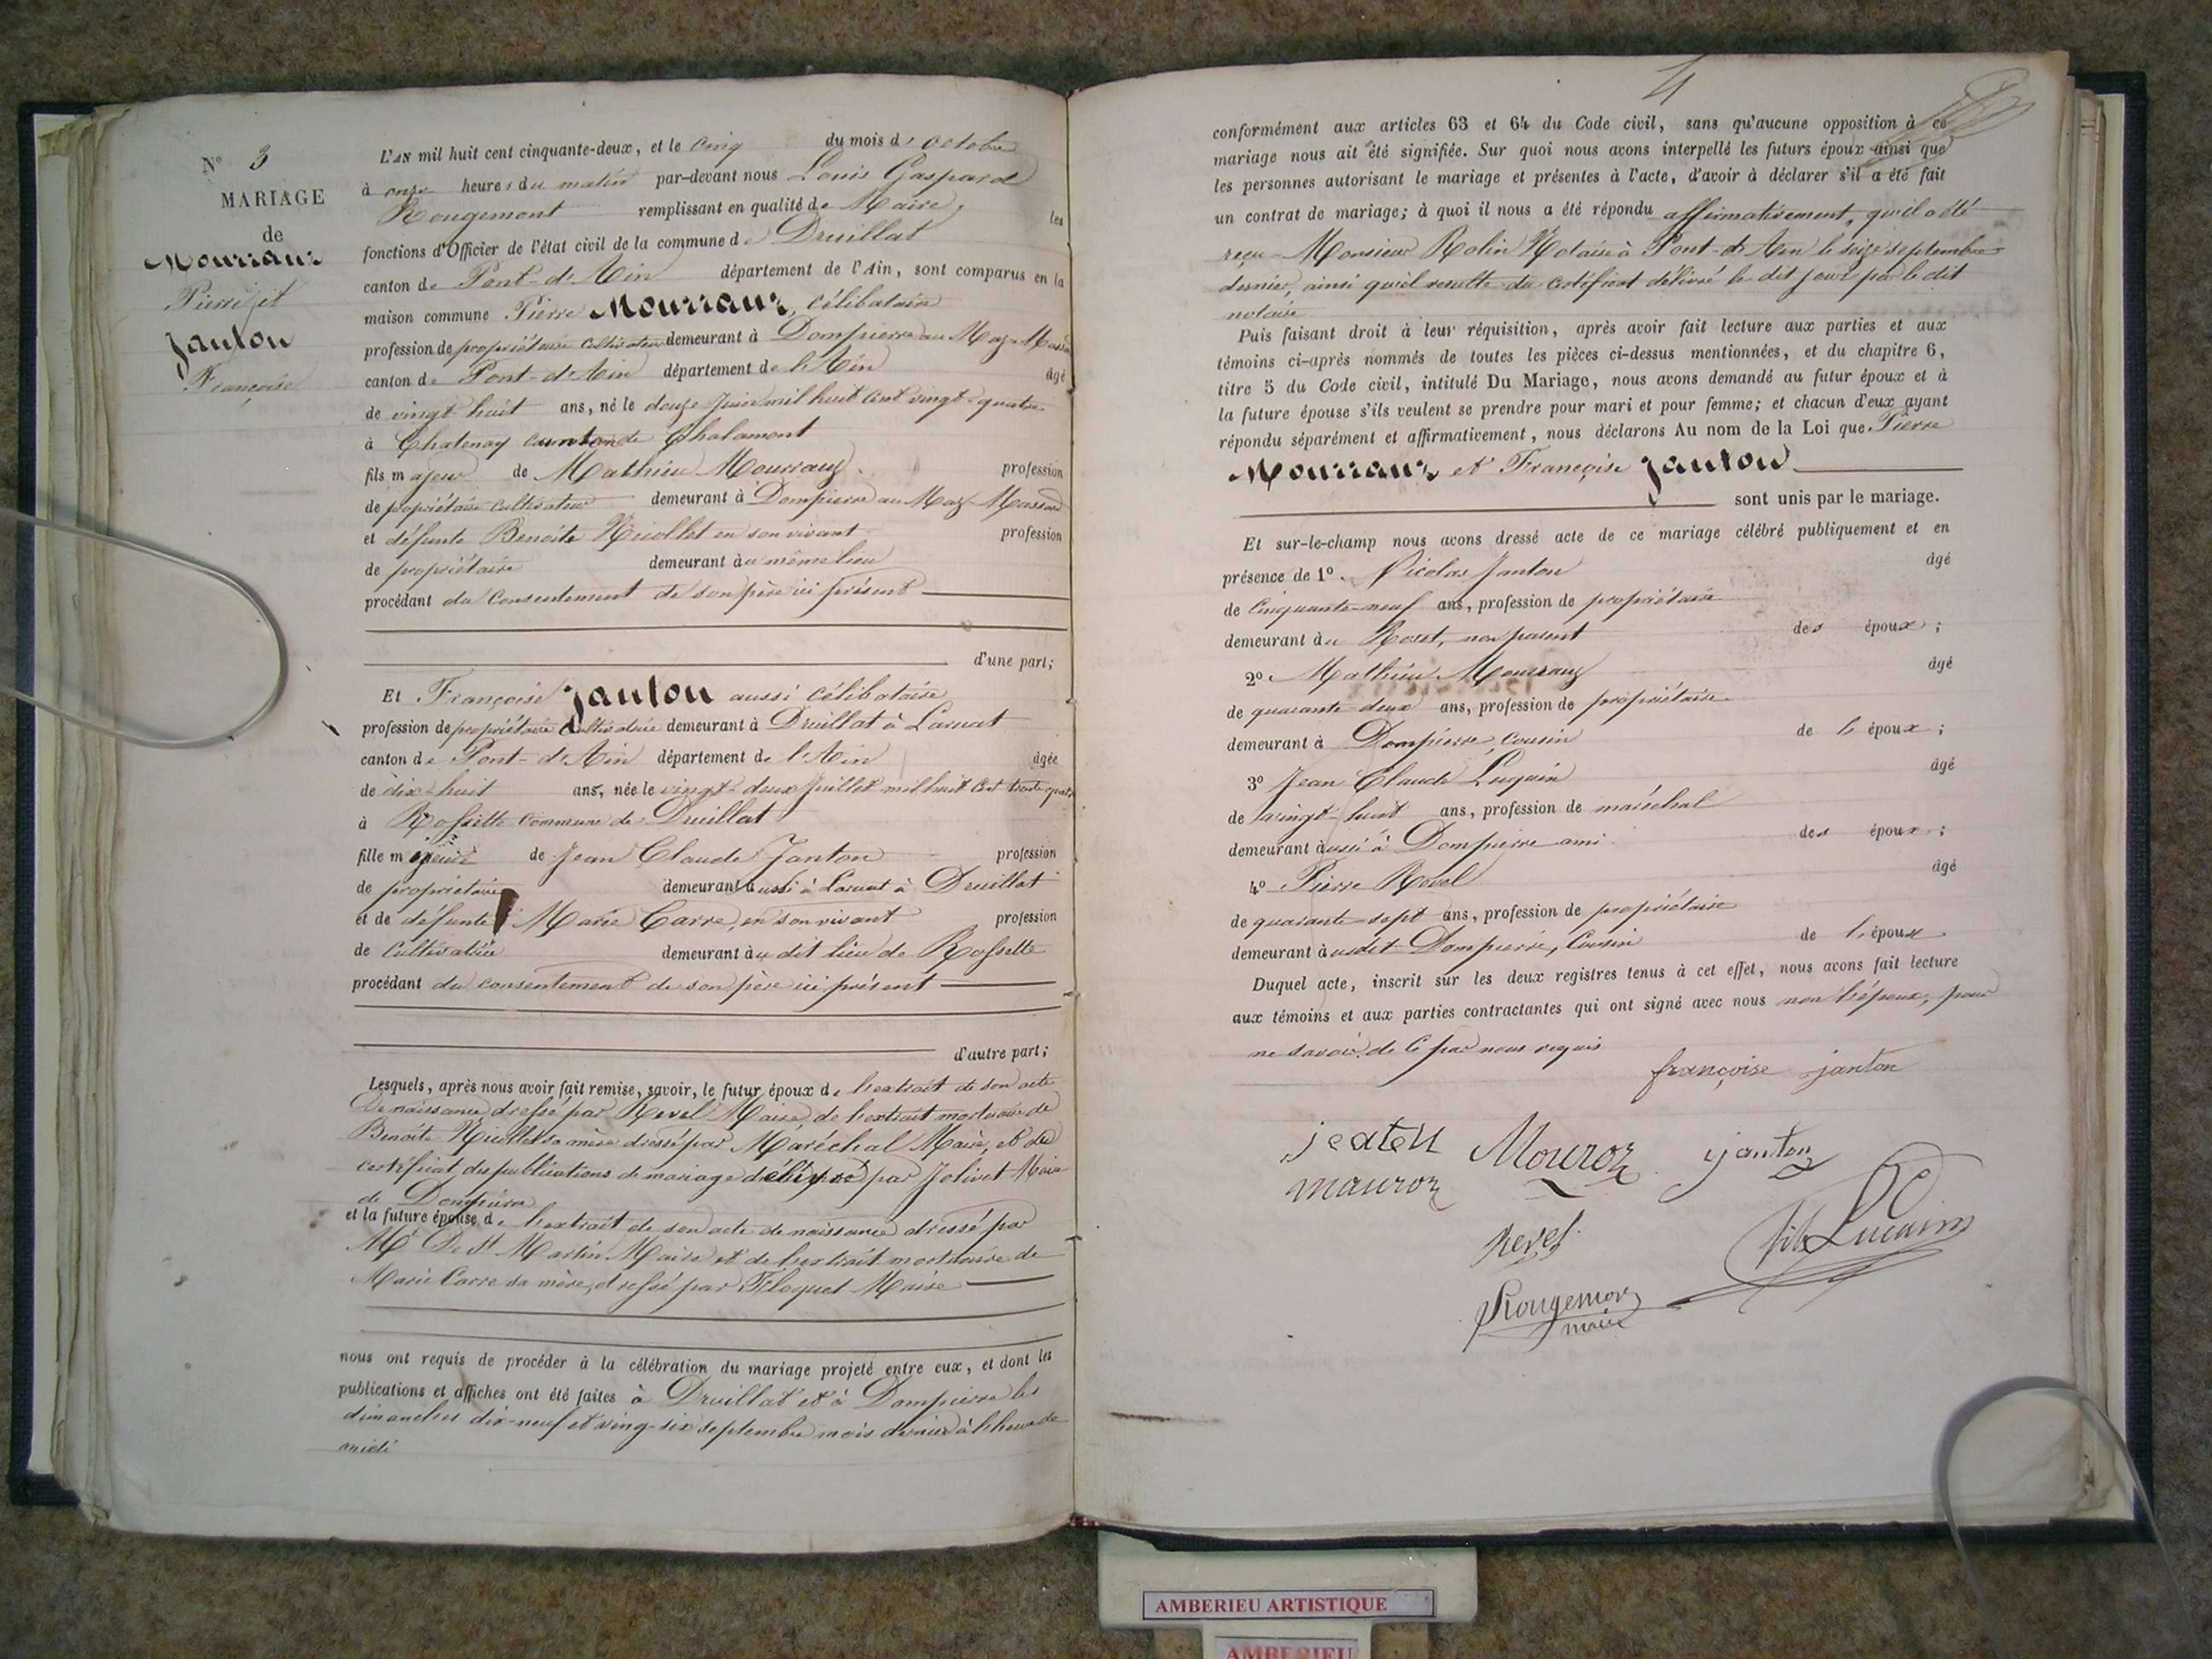 N° 3
MARIAGE
de
Mourraux
Pierre et
Janton
Françoise
L'AN mil huit cent cinquante-deux, et le cinq du mois d'octobre
à onze heures du matin par-devant nous Louis Gaspard
Rougemont remplissant en qualité de Maire, les
fonctions d'Officier de l'état civil de la commune de Druillat
canton de Pont-d'Ain département de l'Ain, sont comparus en la
maison commune Pierre Mourraux, célibataire
profession de propriétaire cultivateur demeurant à Dompierre au Maz-Massard
canton de Pont-d'Ain département de l'Ain âgé
de vingt huit ans, né le douze Juin mil huit cent vingt-quatre
à Chatenay canton de Chalamont
fils majeur de Mathieu Mourraux profession
de propriétaire cultivateur demeurant à Dompierre au Maz-Massard
et défunte Benoite Nicollet en son vivant profession
de propriétaire demeurant au même lieu
procédant du consentement de son père ici présent
d'une part;
Et Françoise Janton aussi célibataire
profession de propriétaire cultivatrice demeurant à Druillat à Larnat
canton de Pont-d'Ain département de l'Ain âgée
de dix-huit ans, née le vingt-deux Juillet mil huit cent trente quatre
à Rossette commune de Druillat
fille m de Jean Claude Janton profession
de propriétaire demeurant aussi à Larnat à Druillat
et de défunte Marie Carre, en son vivant profession
de cultivatrice demeurant au dit lieu de Rossette
procédant du consentement de son père ici présent
d'autre part;
Lesquels, après nous avoir fait remise, savoir, le futur époux de l'extrait de son acte
de naissance dressé par Revel Maire, de l'extrait mortuaire de
Benoite Nicollet sa mère dressé par Maréchal Maire, et du
certificat des publications de mariage délivré par Jolivet Maire
de Dompierre
et la future épouse de l'extrait de son acte de naissance dressé par
Mr De St Martin Maire et de l'extrait mortuaire de
Marie Carre sa mère, dressé par Floquet Maire
nous ont requis de procéder à la célébration du mariage projeté entre eux, et dont les
publications et affiches ont été faites à Druillat et à Dompierre les
dimanches dix-neuf et ving-six septembre mois dernier à l'heure de
midi
4
conformément aux articles 63 et 64 du Code civil, sans qu'aucune opposition à ce
mariage nous ait été signifiée. Sur quoi nous avons interpellé les futurs époux ainsi que
les personnes autorisant le mariage et présentes à l'acte, d'avoir à déclarer s'il a été fait
un contrat de mariage; à quoi il nous a été répondu affirmativement, qu'il a été
reçu Monsieur Rolin Notaire à Pont-d'Ain le seize septembre
dernier, ainsi qu'il resulte du certificat délivré le dit jour par le dit
notaire
Puis faisant droit à leur réquisition, après avoir fait lecture aux parties et aux
témoins ci-après nommés de toutes les pièces ci-dessus mentionnées, et du chapitre 6,
titre 5 du Code civil, intitulé Du Mariage, nous avons demandé au futur époux et à
la future épouse s'ils veulent se prendre pour mari et pour femme; et chacun d'eux ayant
répondu séparément et affirmativement, nous déclarons Au nom de la Loi que Pierre
Mourraux et Françoise Janton
sont unis par le mariage.
Et sur-le-champ nous avons dressé acte de ce mariage célébré publiquement et en
présence de 1° Nicolas Janton âgé
de cinquante-neuf ans, profession de propriétaire
demeurant au Rozet, non parent des époux;
2° Mathieu Mourraux âgé
de quarante-deux ans, profession de propriétaire
demeurant à Dompierre, cousin de l'époux;
3° Jean Claude Luquin âgé
de vingt-huit ans, profession de maréchal
demeurant aussi à Dompierre ami des époux;
4° Pierre Revel âgé
de quarante-sept ans, profession de propriétaire
demeurant audit Dompierre, cousin de l'époux.
Duquel acte, inscrit sur les deux registres tenus à cet effet, nous avons fait lecture
aux témoins et aux parties contractantes qui ont signé avec nous non l'époux, pour
ne savoir de ce par nous requis
françoise janton
Mouroz janton
mauroz
Revel
Rougemont
maire
AMBERIEU ARTISTIQUE
AMBERIEU